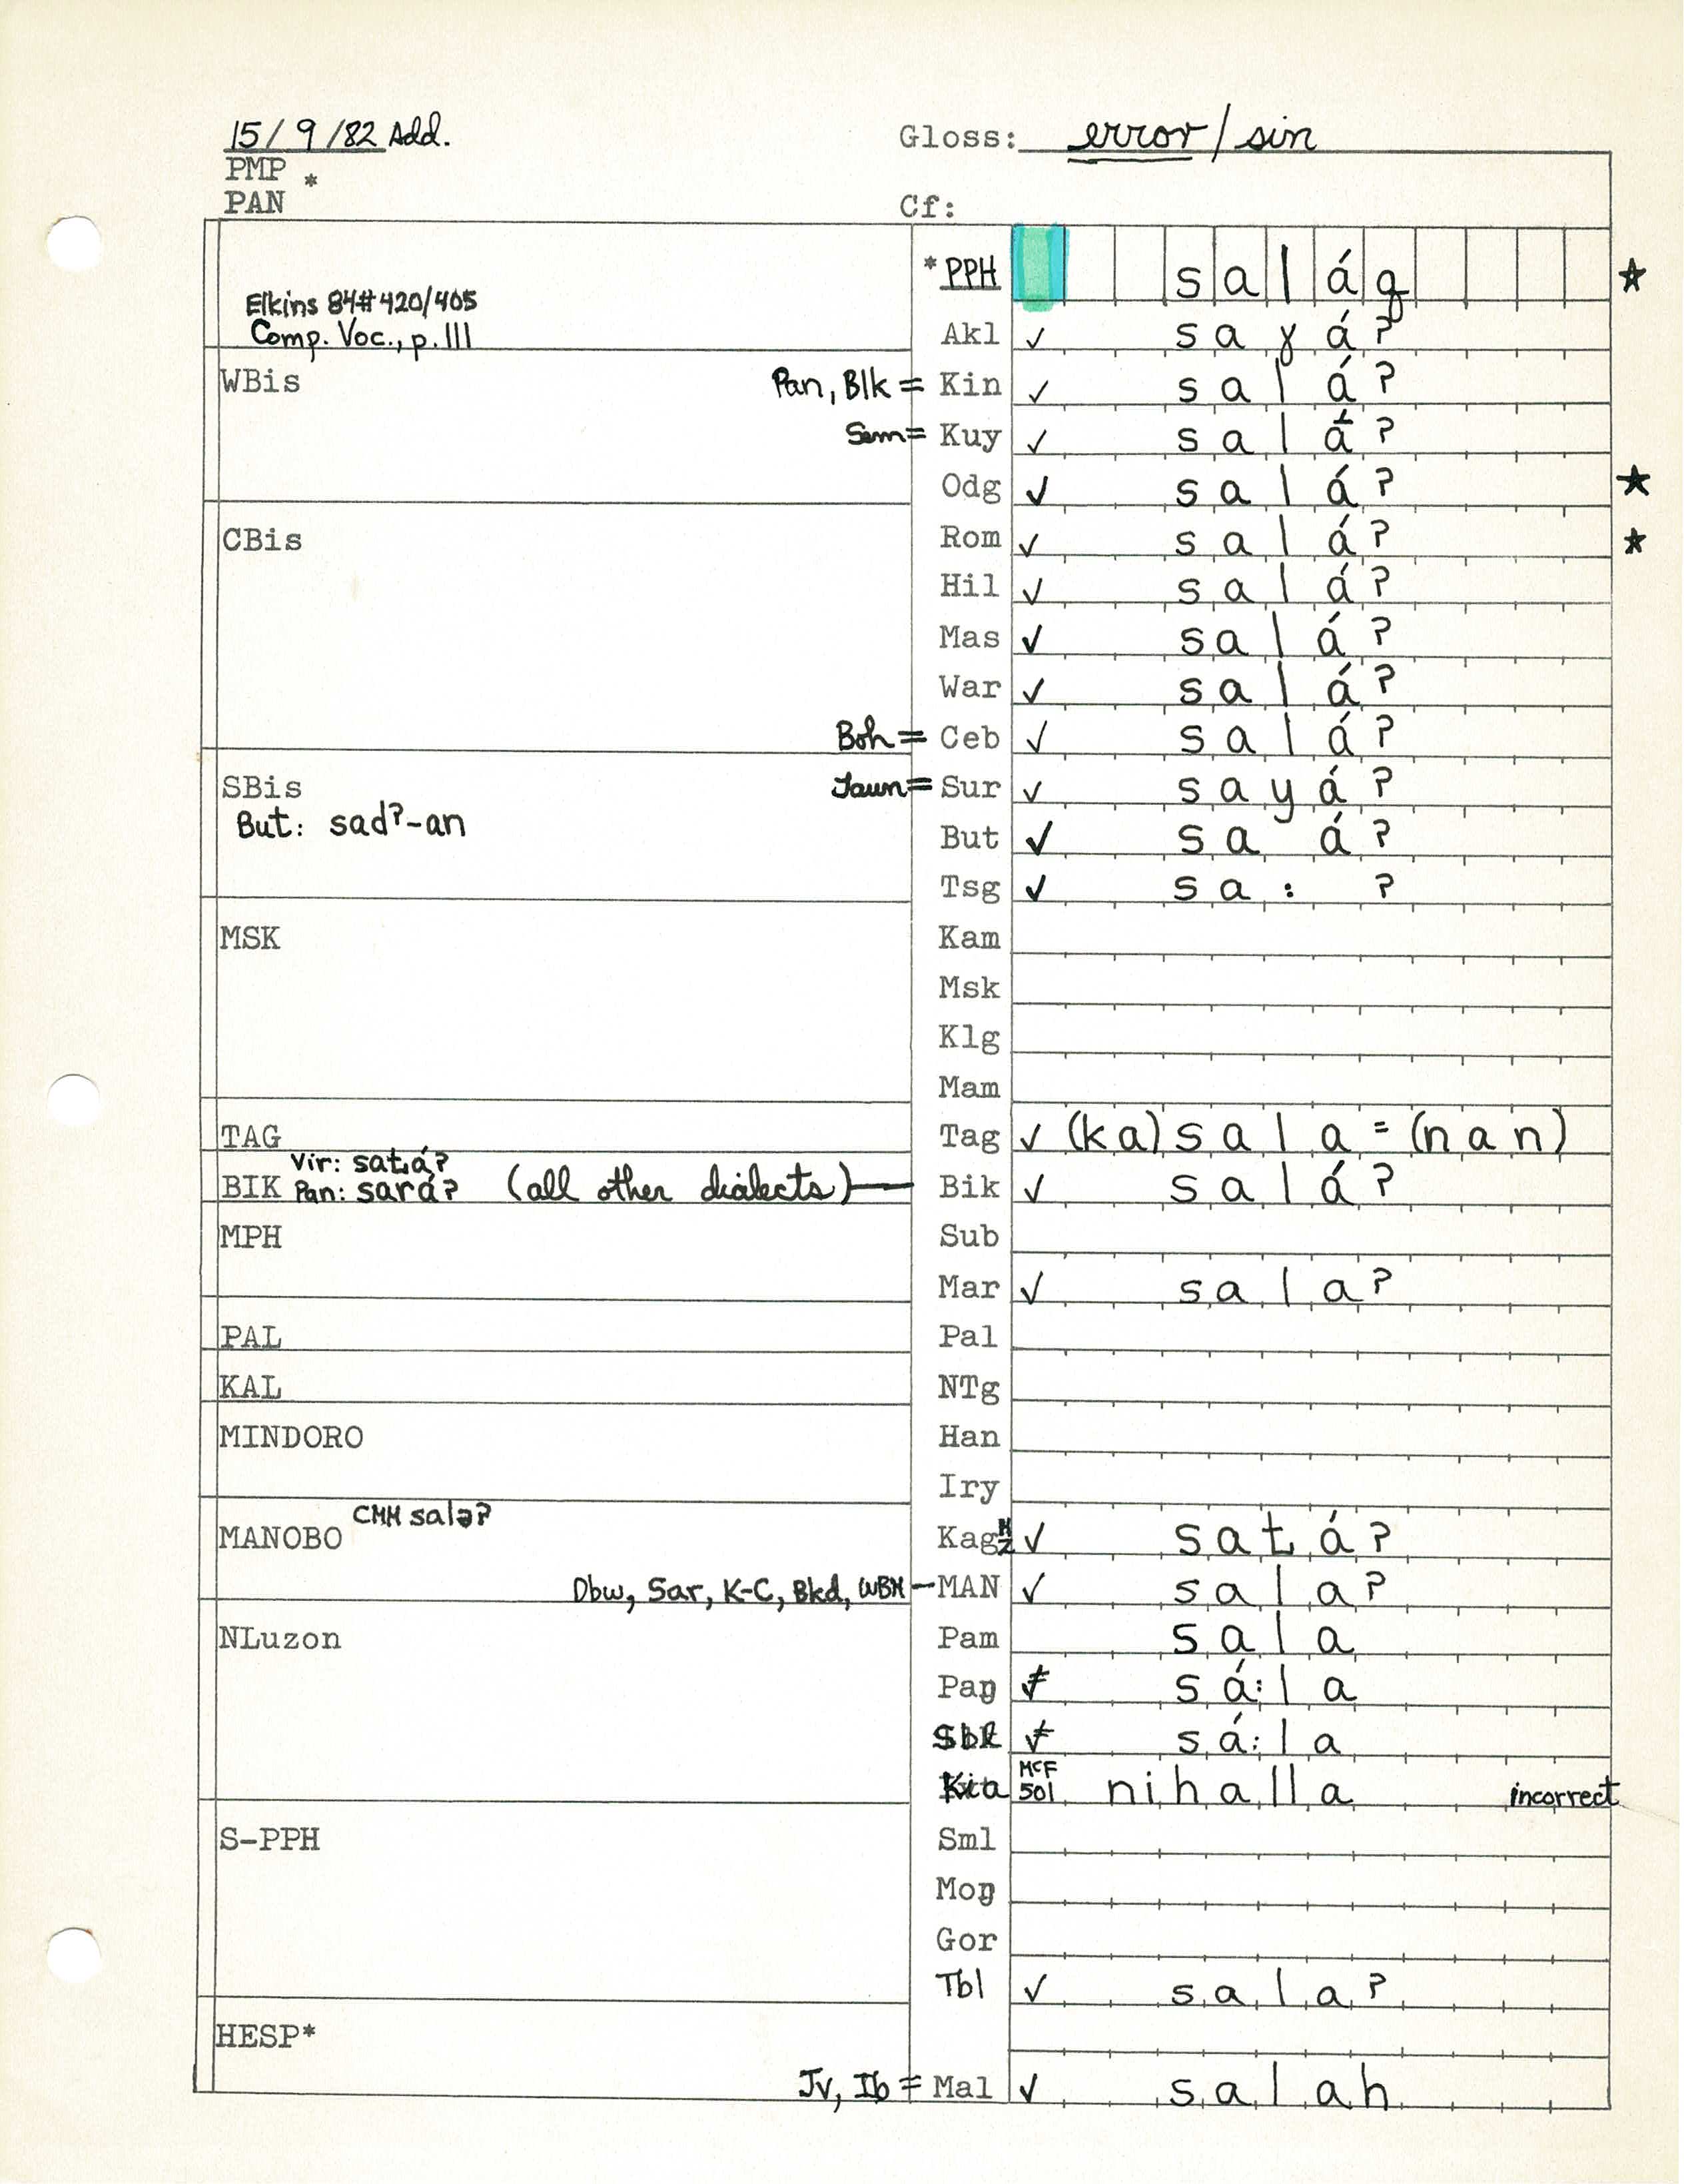 15/9/82 Add.
Gloss: error/sin
PMP *
PAN
Cf:
*PPH saláq ★
Elkins 84#420/405
Comp. Voc., p. 111
Akl ✓ sayáʔ
WBis
Pan, Blk = Kin ✓ saláʔ
Sem = Kuy ✓ saláʔ
Odg ✓ saláʔ ★
CBis
Rom ✓ saláʔ ★
Hil ✓ saláʔ
Mas ✓ saláʔ
War ✓ saláʔ
Boh = Ceb ✓ saláʔ
SBis
Jaun = Sur ✓ sayáʔ
But: sadʔ-an
But ✓ sa áʔ
Tsg ✓ sa: ʔ
MSK
Kam
Msk
Klg
Mam
TAG
Tag ✓ (ka)sala=(nan)
Vir: satáʔ
BIK Pan: saráʔ (all other dialects) — Bik ✓ saláʔ
MPH
Sub
Mar ✓ salaʔ
PAL
Pal
KAL
NTg
MINDORO
Han
Iry
CMH saləʔ
MANOBO
Kag MZ ✓ satáʔ
Dbw, Sar, K-C, Bkd, WBM — MAN ✓ salaʔ
NLuzon
Pam sala
Paŋ ≠ sá:la
Sbl ≠ sá:la
Kia MCF 501 nihalla incorrect
S-PPH
Sml
Moŋ
Gor
Tbl ✓ salaʔ
HESP*
Jv, Ib ≠ Mal ✓ salah